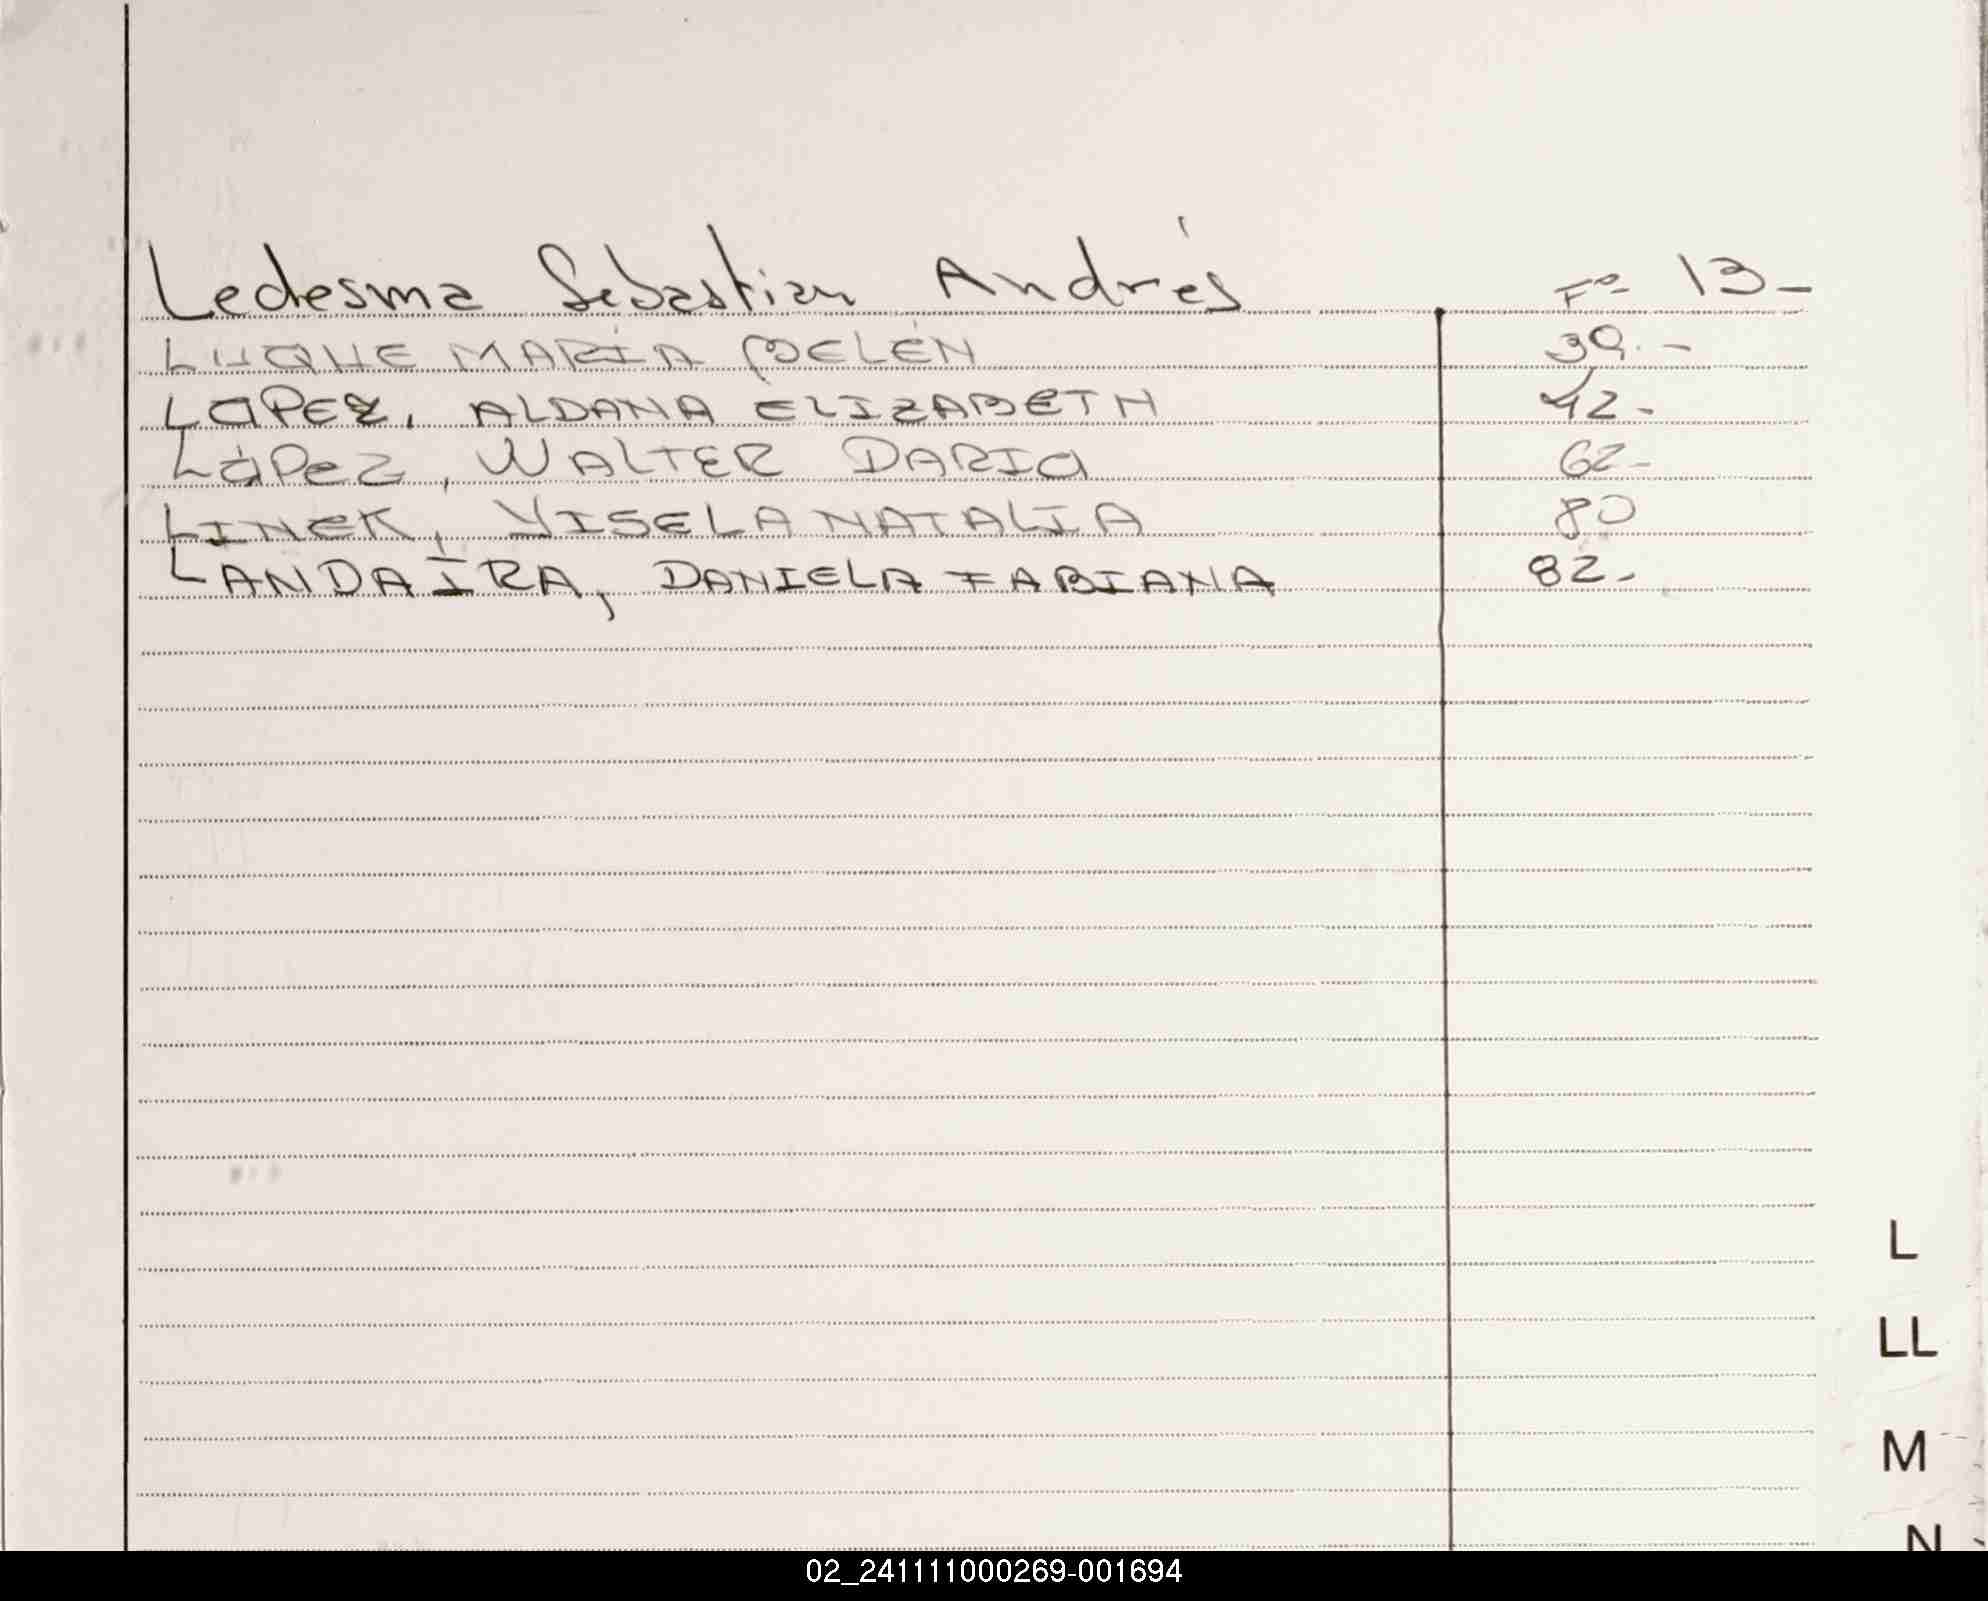 Ledesma Sebastian Andrés Fº 13-
LUQUE MARÍA BELÉN 39.-
LOPEZ, ALDANA ELIZABETH 42-
LóPez, WALTER DARIO 62-
LINEK, YISELA NATALIA 80
LANDAIRA, DANIELA FABIANA 82-
L
LL
M
N
02_241111000269-001694